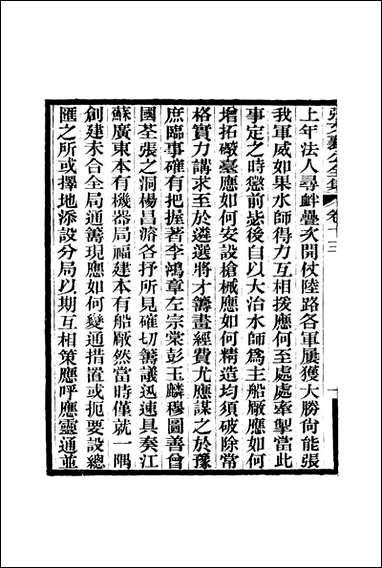 張文襄公全集 卷十三
上年法人尋衅疊次開仗陸路各軍屢獲大勝尙能張
我軍威如果水師得力互相援應何至處處牽掣當此
事定之時懲前毖後自以大治水師爲主船廠應如何
增拓礮臺應如何安設槍械應如何精造均須破除常
格實力講求至於遴選將才籌畫經費尤應謀之於豫
庶臨事確有把握著李鴻章左宗棠彭玉麟穆圖善曾
國荃張之洞楊昌濬各抒所見確切籌議迅速具奏江
蘇廣東本有機器局福建本有船厰然當時僅就一隅
創建未合全局通籌現應如何變通措置或扼要設總
匯之所或擇地添設分局以期互相策應呼應靈通並